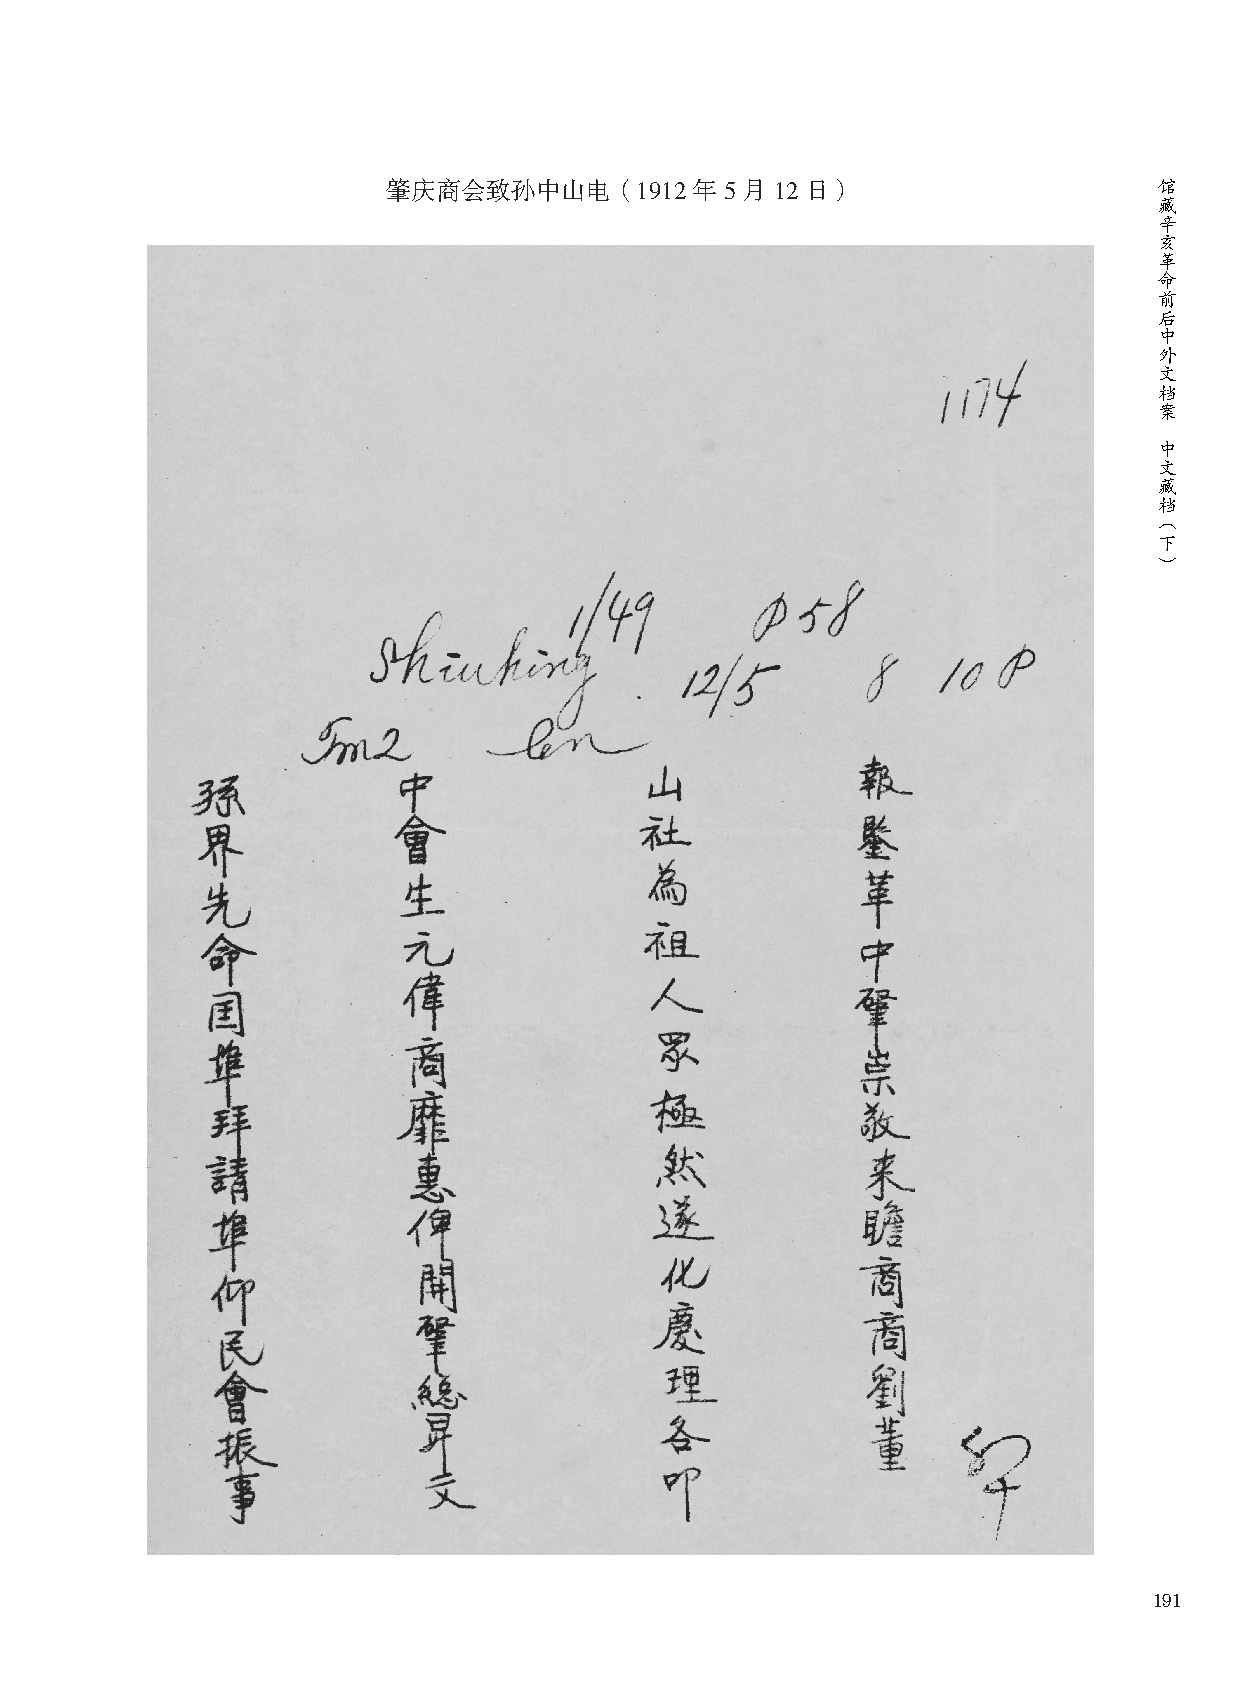 肇庆商会致孙中山电（1912 年 5 月 12 日）
馆藏辛亥革命前后中外文档案 中文藏档（下）
1174
1/49 P 58
Shiuhing 12/5 8 10 P
孫中山報
界會社鑒
先生為革
命元祖中
囯偉人肇
埠商眾崇
拜靡極敬
請惠然来
埠俾遂瞻
仰開化商
民肇慶商
會総理劉
振昇各董
事文叩
191